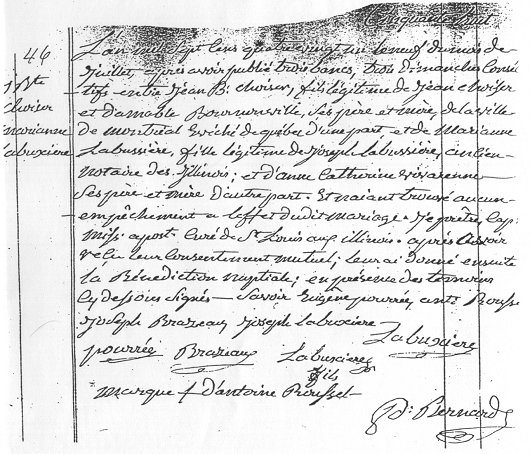 Cinquante huit
46
L'an mil sept cens quatre vingt un le neuf du mois de
Juillet, après avoir publié trois bancs, trois dimanches Consé
tifs entre Jean B:
et d'amable Bournonville, ses père et mère, de la ville
de montréal Evêché de québec d'une part, et de Marianne
Labussière, fille légitime de Joseph Labussière, ancien
notaire des Illinois; et d'anne Catherine
Ses père et mère d'autre part. Et n'aiant trouvé aucun
empêchement a l'effet dudit mariage. Je prêtre, Cap:
miss: apost: Curé de St Louis aux illinois. après avoir
reçu leur Consentement mutuel; leur ai donné ensuite
la Bénédiction nuptiale; en présence des temoins
Cy dessous signés— Savoir Eugène pourrée, ant:
Joseph Brazeau Joseph labuxiere
marianne
labuxiere
Labuxiere
pourrée Brazeau Labuxiere
fils
marque + d'antoine
Bernard